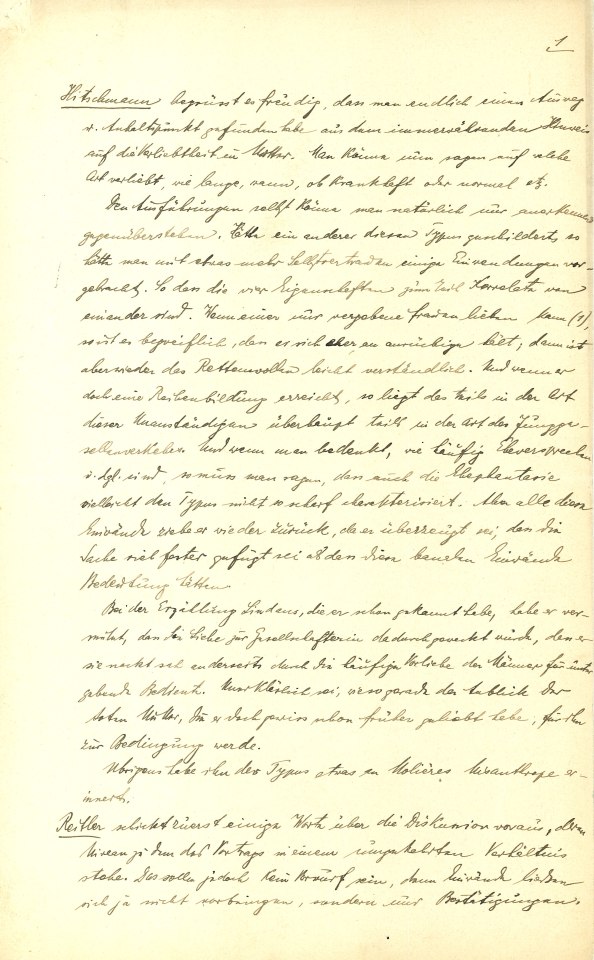 1
Hitschmann begrüsst es freudig, dass man endlich einen Ausweg
u. Anhaltspunkt gefunden habe aus dem immerwährenden Hinweis
auf die Verliebtheit in Mutter. Man könne nun sagen auf welche
Art verliebt, wie lange, wann, ob krankhaft oder normal etz.
Den Ausführungen selbst könne man natürlich nur anerkennend
gegenüberstehen. Hätte ein anderer diesen Typus geschildert, so
hätte man mit etwas mehr Selbstvertrauen einige Einwendungen vor-
gebracht. So dass die vier Eigenschaften zum Teil Korrelate von
einander sind. Wenn einer nur vergebene Frauen lieben kann (1),
so ist es begreiflich, dass er sich eher an anrüchige hält; dann ist
aber wieder das Rettenwollen leicht verständlich. Und wenn er
doch eine Reihenbildung erreicht, so liegt das teils in der Art
dieser Unanständigen überhaupt teils in der Art des Jungge-
sellenverkehrs. Und wenn man bedenkt, wie häufig Eheversprechen
u. dgl. sind, so muss man sagen, dass auch die Ehephantasie
vielleicht den Typus nicht so scharf charakterisiert. Aber alle diese
Einwände ziehe er wieder zurück, da er überzeugt sei, dass die
Sache viel fester gefügt sei als dass diese banalen Einwände
Bedeutung hätten.
Bei der Erzählung Lindens, die er schon gekannt habe, habe er ver-
mutet, dass die Liebe zur Gesellschafterin dadurch geweckt würde, dass er
sie nackt sah anderseits durch die häufige Vorliebe der Männer für unter-
gebende Bedienst. Unerklärlich sei, wieso gerade der Anblick der
toten Mutter, die er doch gewiss schon früher geliebt habe, für ihn
zur Bedingung werde.
Übrigens habe ihn der Typus etwas an Molières Misanthrope er-
innert.
Reitler schickt zuerst einige Worte über die Diskussion voraus, deren
Niveau zu dem des Vortrags in einem umgekehrten Verhältnis
stehe. Das solle jedoch kein Vorwurf sein, denn Einwände liessen
sich ja nicht vorbringen, sondern nur Bestätigungen.